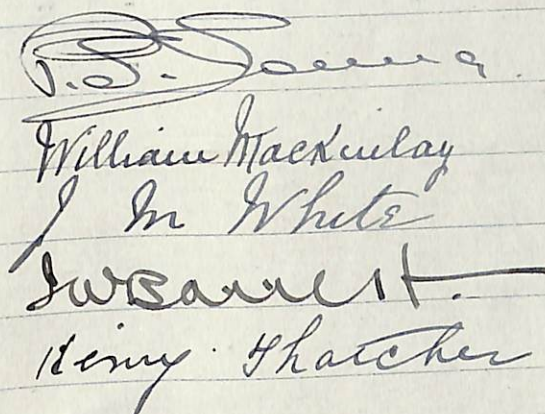 William Mackinlay
J M White
J W Barrett.
Henry Thatcher